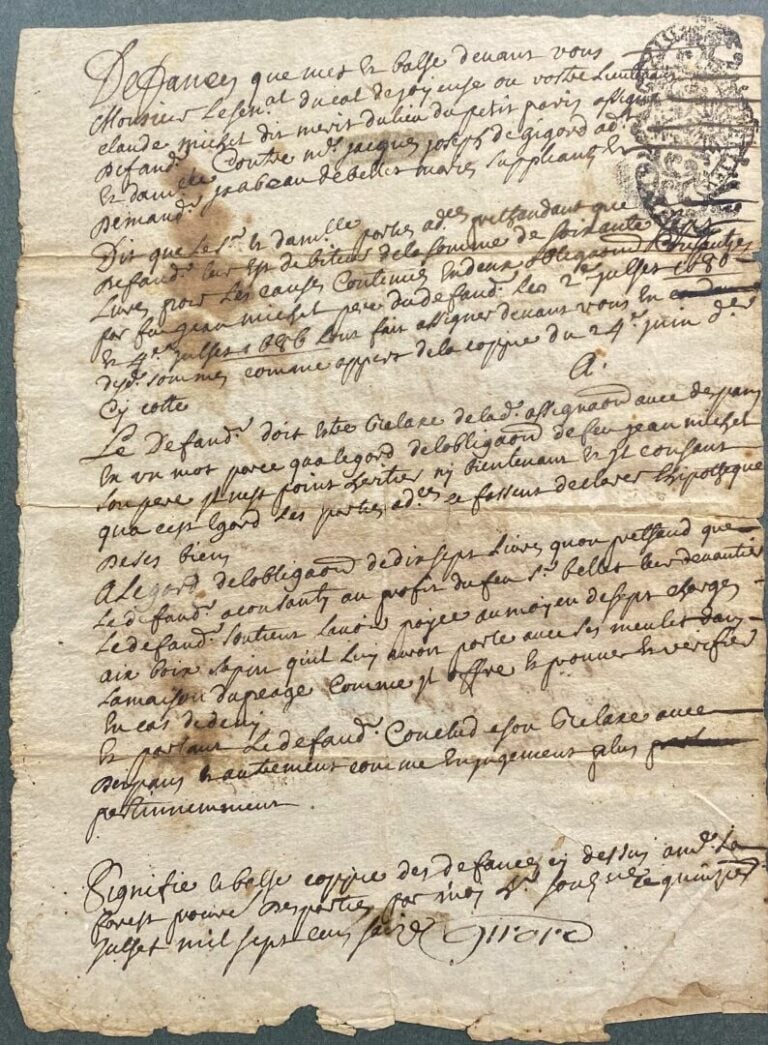 Defances que met et balhe devant vous
Monsieur Lesenal ducal de joyeuse ou vostre Lieutenant
claude michel dit merit du lieu du petit paris assigné
Defandr Contre mr jacques joseph de gigord adr
Et damlle jsabeau de bellet maries Suppliants et
Demandr
Dit que Le Sr et damlle parties adves prethandant que
Defandr leur Est debiteur de la somme de soixante
Livres pour Les causes Contenues En deux obligaons
par feu jean michel pere du defandr Les 2e julhet 1680
et 4e julhet 1686 Lont fait assigner devant vous En
desd sommes comme appert de la coppie du 24e juin der
Cy cotté A.
Le Defandr doit Estre Relaxé de lad assignaon avec despans
En un mot parce qua legard de lobligaon de feu jean michel
son pere jl nest point heritier ny bientenant Et jl consant
qua cest Egard Les parties adves fassent declarer hipotheque
Deses biens
A Legard de lobligaon de dix sept Livres quon prethand que
Le defandr a consanty au profit du feu Sr bellet Leur devantier
Le defandr soutient Lavoir payée au moyen de sept charges
aix boix sapin quil Luy avoit porté avec ses mulets dans
La maison du peage Comme jl offre de prouver Et verifier
En cas de deny
Et partant Le defandr Conclud a son Relaxe avec
Despans Et autrement comme En jugement plus
pertinnemment
Signifié et balhé coppie des defances cy dessus a mr La
forest procur Desparties par moy sr soulsigné ce quinzie
julhet mil sept cens Girard